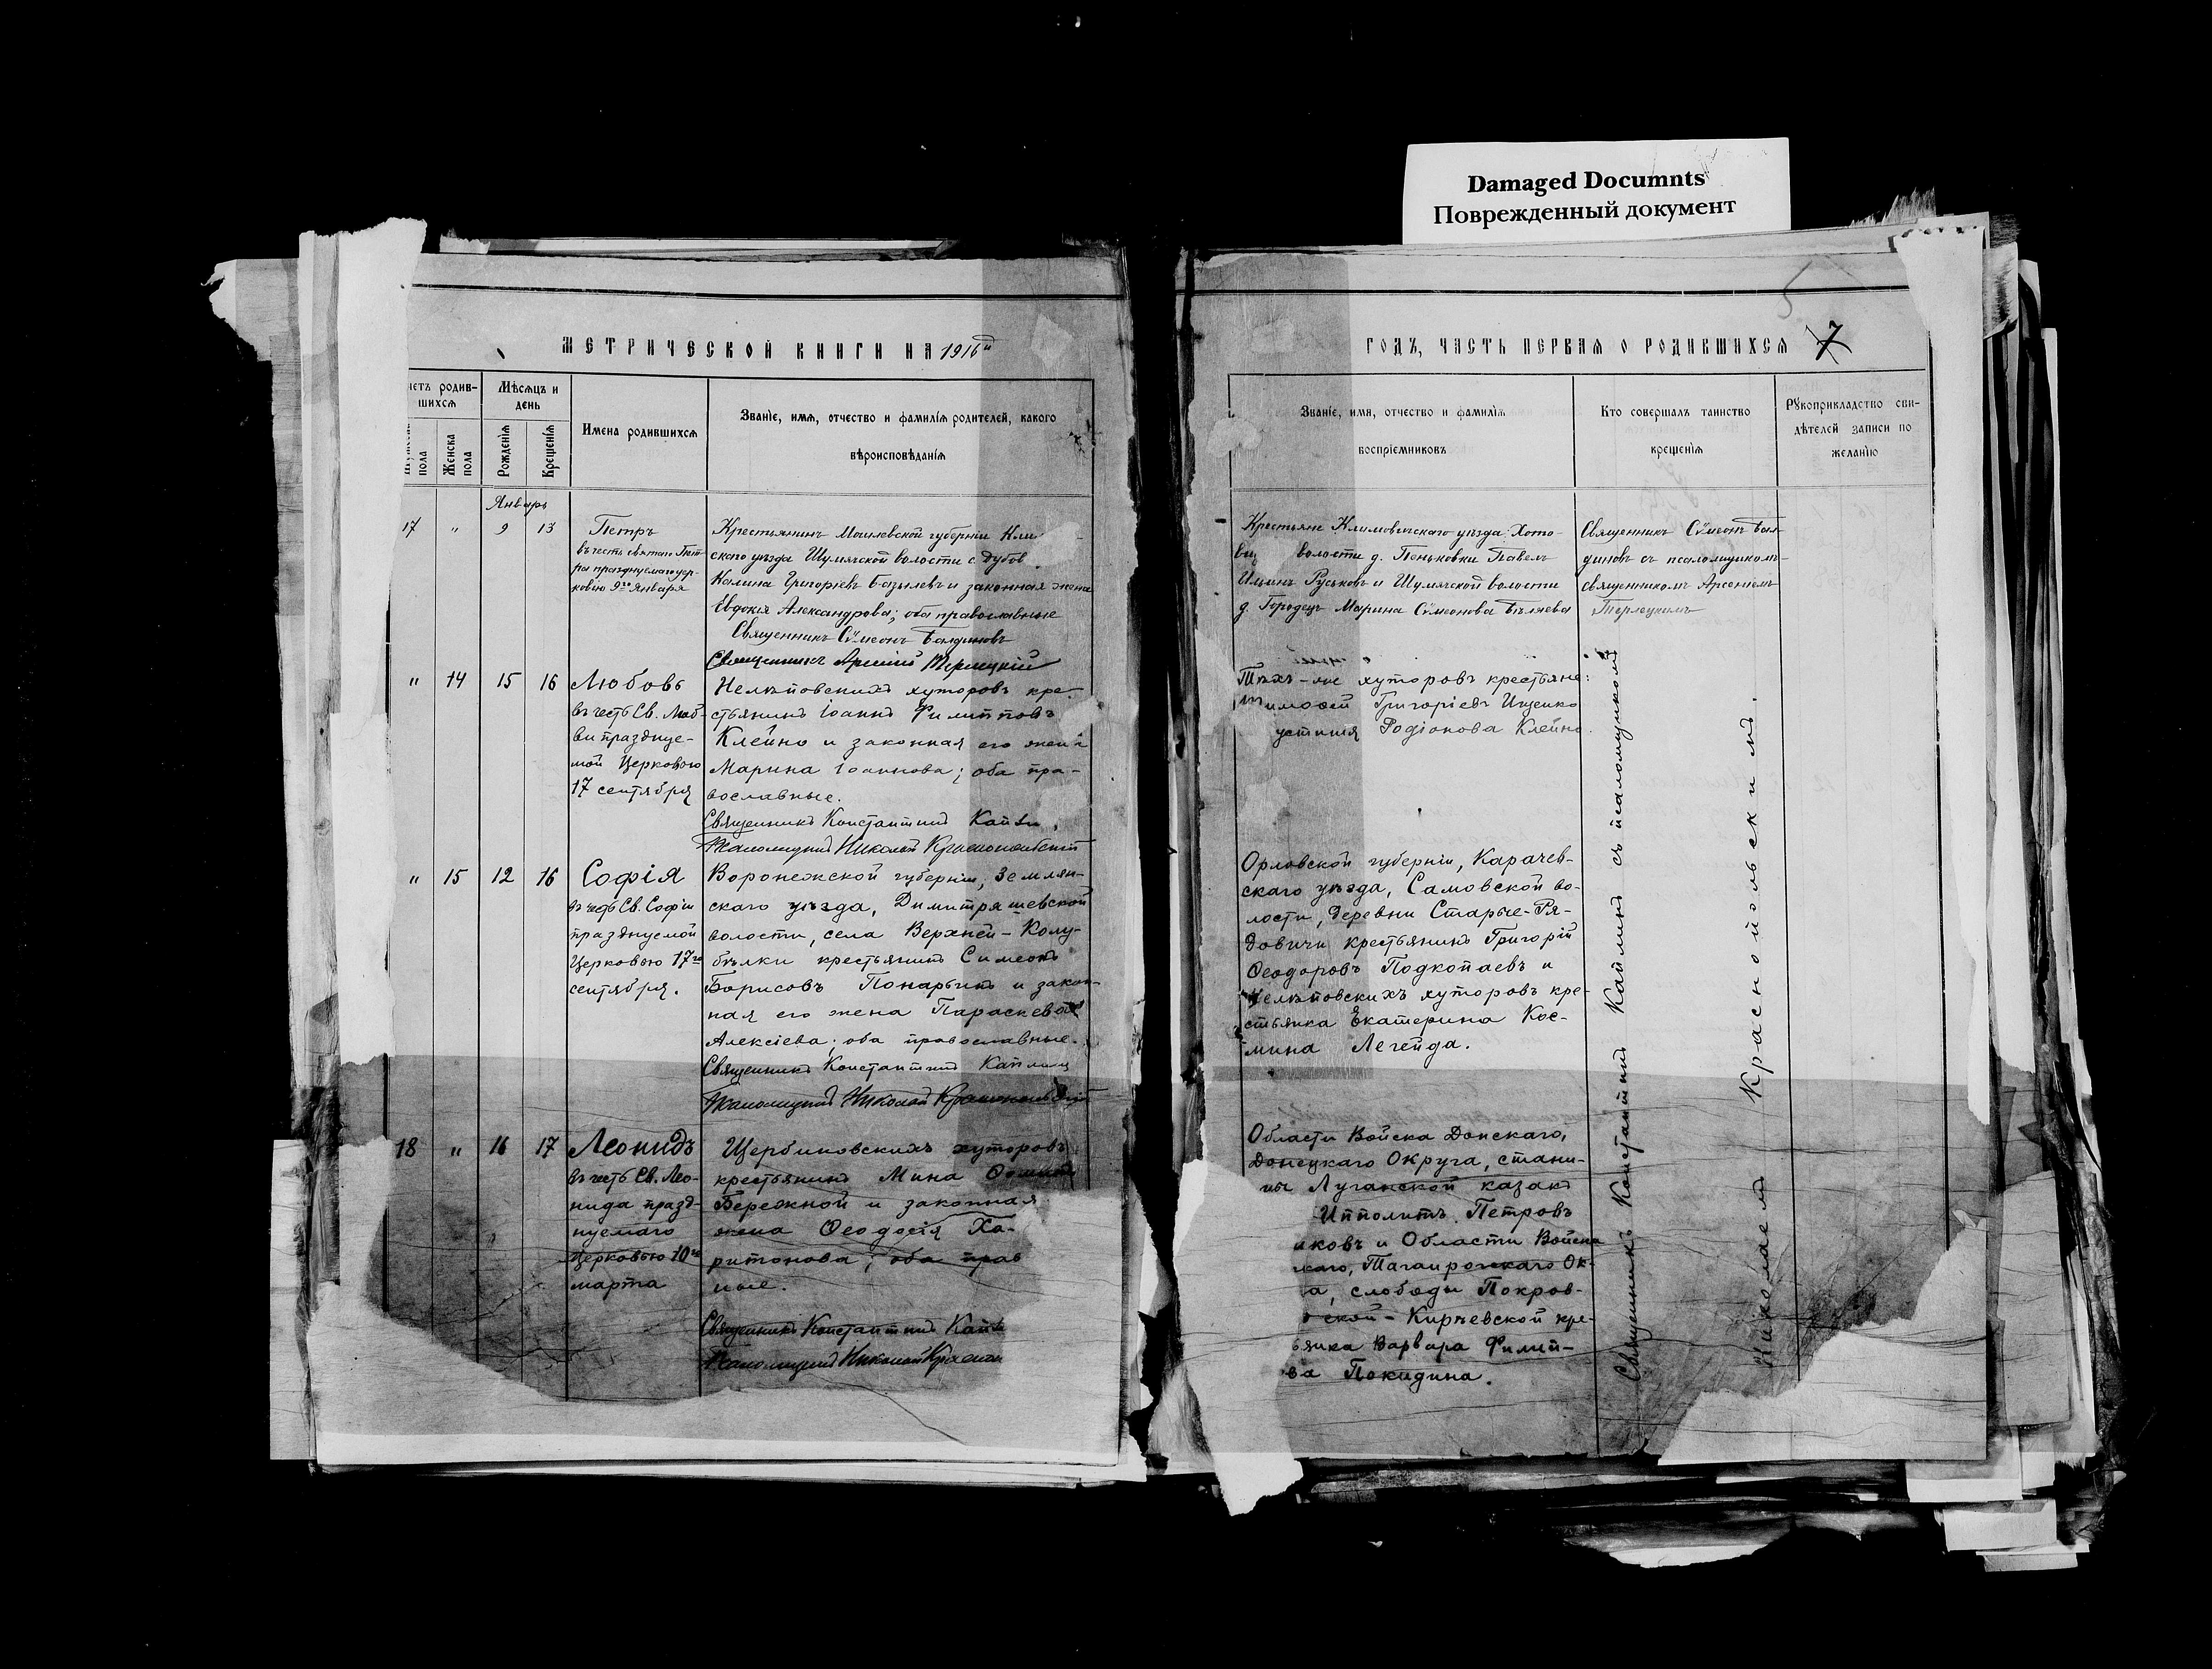 Damaged Documnts
Поврежденный документ
5
МЕТРИЧЕСКОЙ КНИГИ НА 1916й
ГОДЪ, ЧАСТЬ ПЕРВАЯ О РОДИВШИХСЯ 7
четъ родив-
шихся
Мѣсяцъ и
день
Имена родившихся
Званіе, имя, отчество и фамилія родителей, какого
вѣроисповѣданія
пола
Женска
пола
Рожденія
Крещенія
Званіе, имя, отчество и фамилія
воспріемниковъ
Кто совершалъ таинство
крещенія
Рукоприкладство сви-
дѣтелей записи по
желанію
Январь
17 " 9 13
Петръ
въ честь святаго Пет-
ра празднуемаго цер-
ковію 9го Января
Крестьянинъ Могилевской губерніи Кли
скаго уѣзда Шумячской волости с. Дубов
Калина Григоріевъ Базылевъ и законная жена
Евдокія Александрова; оба православные
Священникъ Сѵмеонъ Балдиновъ
Священникъ Арсеній Терлецкій
Крестьяне Климовичскаго уѣзда Хото-
волости д. Пеньковки Павелъ
Ильинъ Руськовъ и Шумячской волости
д. Городецъ Марина Сѵмеонова Бѣляева
Священникъ Сѵмеонъ Бал-
диновъ съ псаломщикомъ-
священникомъ Арсеніемъ
Терлецкимъ
" 14 15 16
Любовь
въ честь Св. Люб-
ви празднуе-
мой Церковью
17 сентября
Нелѣповскихъ хуторовъ кре-
стьянинъ Іоаннъ Филипповъ
Клейно и законная его жена
Марина Іоаннова; оба пра-
вославные.
Священникъ Константинъ Капл
Псаломщикъ Николай Краснопольскій
Тѣхъ-же хуторовъ крестьяне:
имофей Григоріевъ Ищенко
устинія Родіонова Клейно.
" 15 12 16
Софія
въ честь Св. Софіи
празднуемой
Церковью 17го
сентября.
Воронежской губерніи, Землян-
скаго уѣзда, Димитряшевской
волости, села Верхней-Колу-
бѣлки крестьянинъ Симеонъ
Борисовъ Понарьинъ и закон-
ная его жена Параскева
Алексіева; оба православные.
Священникъ Константинъ Каплин
Псаломщикъ Николай Краснопольскій
Орловской губерніи, Карачев-
скаго уѣзда, Самовской во-
лости, деревни Старые-Ря-
довичи крестьянинъ Григорій
Ѳеодоровъ Подкопаевъ и
Нелѣповскихъ хуторовъ кре-
стьянка Екатерина Кос-
мина Легейда.
18 " 16 17
Леонидъ
въ честь Св. Лео-
нида празд-
нуемаго
Церковью 10го
марта
Щербиновскихъ хуторовъ
крестьянинъ Мина
Бережной и законная
жена Ѳеодосія Ха-
ритонова; оба прав
ные.
Священникъ Константинъ Капл
Псаломщикъ Николай Красноп
Области Войска Донскаго,
Донецкаго Округа, стани-
цы Луганской казакъ
Ипполитъ Петровъ
иковъ и Области Войска
скаго, Таганрогскаго Ок-
а, слободы Покров-
ской-Кирѣевской кре-
ьянка Варвара Филип-
ва Покидина.
Священникъ Константинъ Каплинъ съ псаломщикомъ
Николаемъ Краснопольскимъ.